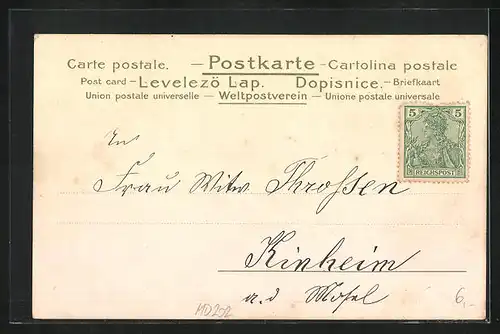 Carte postale. – Postkarte – Cartolina postale
Post card – Levelezö Lap. Dopisnice. – Briefkaart
Union postale universelle – Weltpostverein – Unione postale universale
5 5
REICHSPOST
An
Frau Witw Throssen
Kinheim
a. d Mosel
MD202
6,-